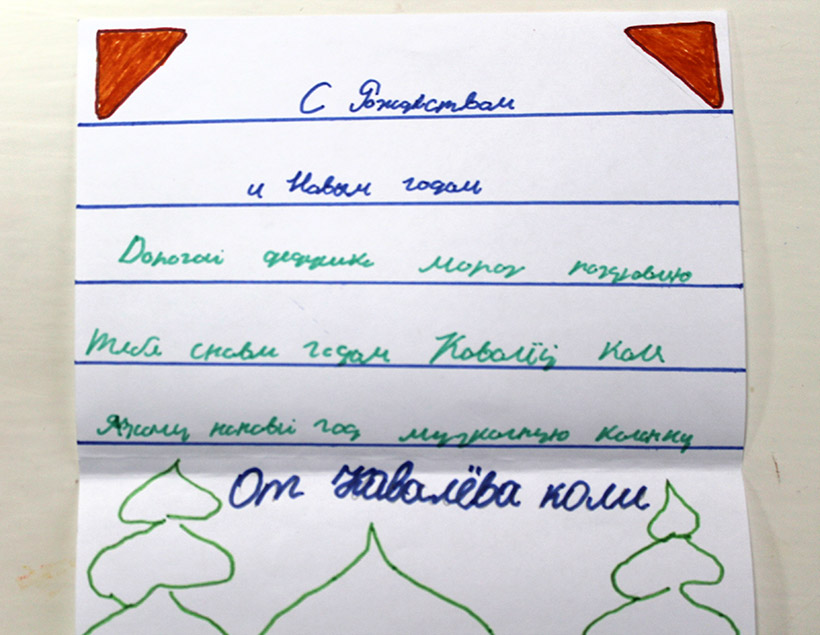 С Рождством
и Новым годом
Дорогой дедушка Мороз поздровлю
Тебя сновым годом Ковалёв Коля
Я хочу нановый год музыкалную колонку
От Кавалёва коли